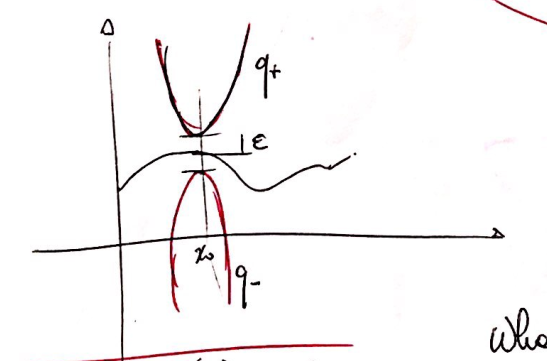 q+
ε
x₀
q-
Who